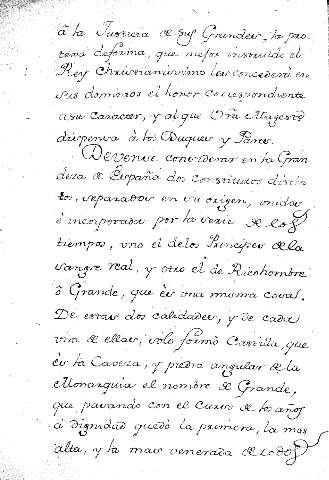 à la Justicia de sus Grandes, la pro-
texa deforma, que mejor instruído el
Rey Christianissimo les concederá en
sus dominios el honor correspondiente
a su caracter, y al que Vrã Magestd
dispensa à los Duques y Pares.
Devense considerar en la Gran
deza de España dos constitutos distin
tos, separados en su origen, unidos
è incorporados por la serie de los
tiempos, uno el de los Principes de la
sangre real, y otro el de Ricohombre
ô Grande, que es una misma cosa.
De estas dos calidades, y de cada
una de ellas, solo formò Castilla, que
es la Caveza, y piedra angular de la
Monarquia el nombre de Grande,
que pasando con el Curso de los años
à dignidad quedó la primera, la mas
alta, y la mas venerada de todos